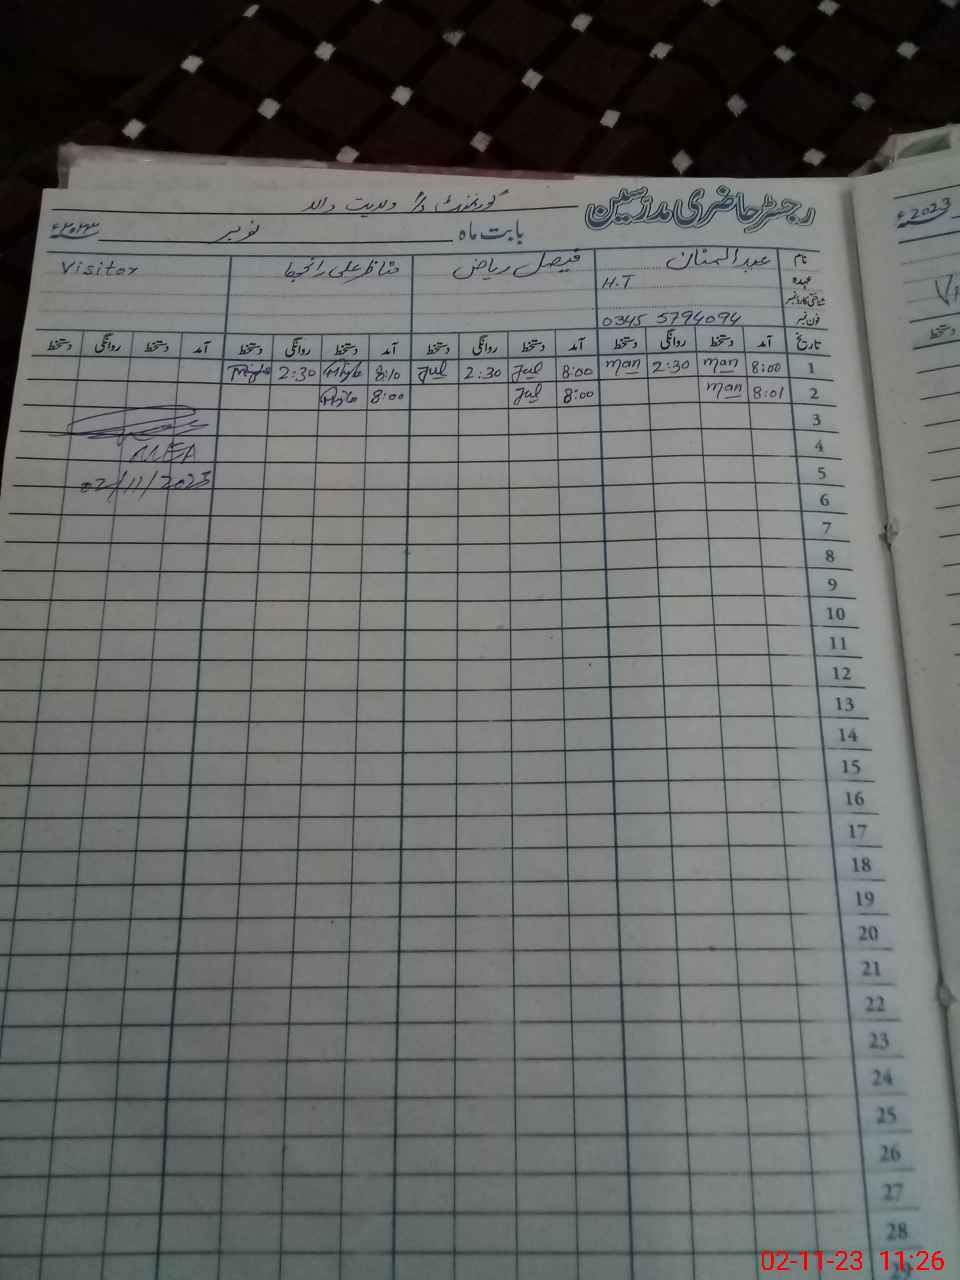 رجسٹر حاضری مدرسین
بابت ماہ نومبر ۲۰۲۳ء
نام عبدالمنان فیصل ریاض مناظر علی رانجھا Visitor
عہدہ H.T
شناختی کارڈ نمبر
فون نمبر 0345 5794094
تاریخ آمد دستخط روانگی دستخط آمد دستخط روانگی دستخط آمد دستخط روانگی دستخط آمد دستخط روانگی دستخط
1 8:00 man 2:30 man 8:00 2:30 8:10 2:30
2 8:01 man 8:00 8:00
3
4 MEA
5 02/11/2023
6
7
8
9
10
11
12
13
14
15
16
17
18
19
20
21
22
23
24
25
26
27
28
2023ء
02-11-23 11:26